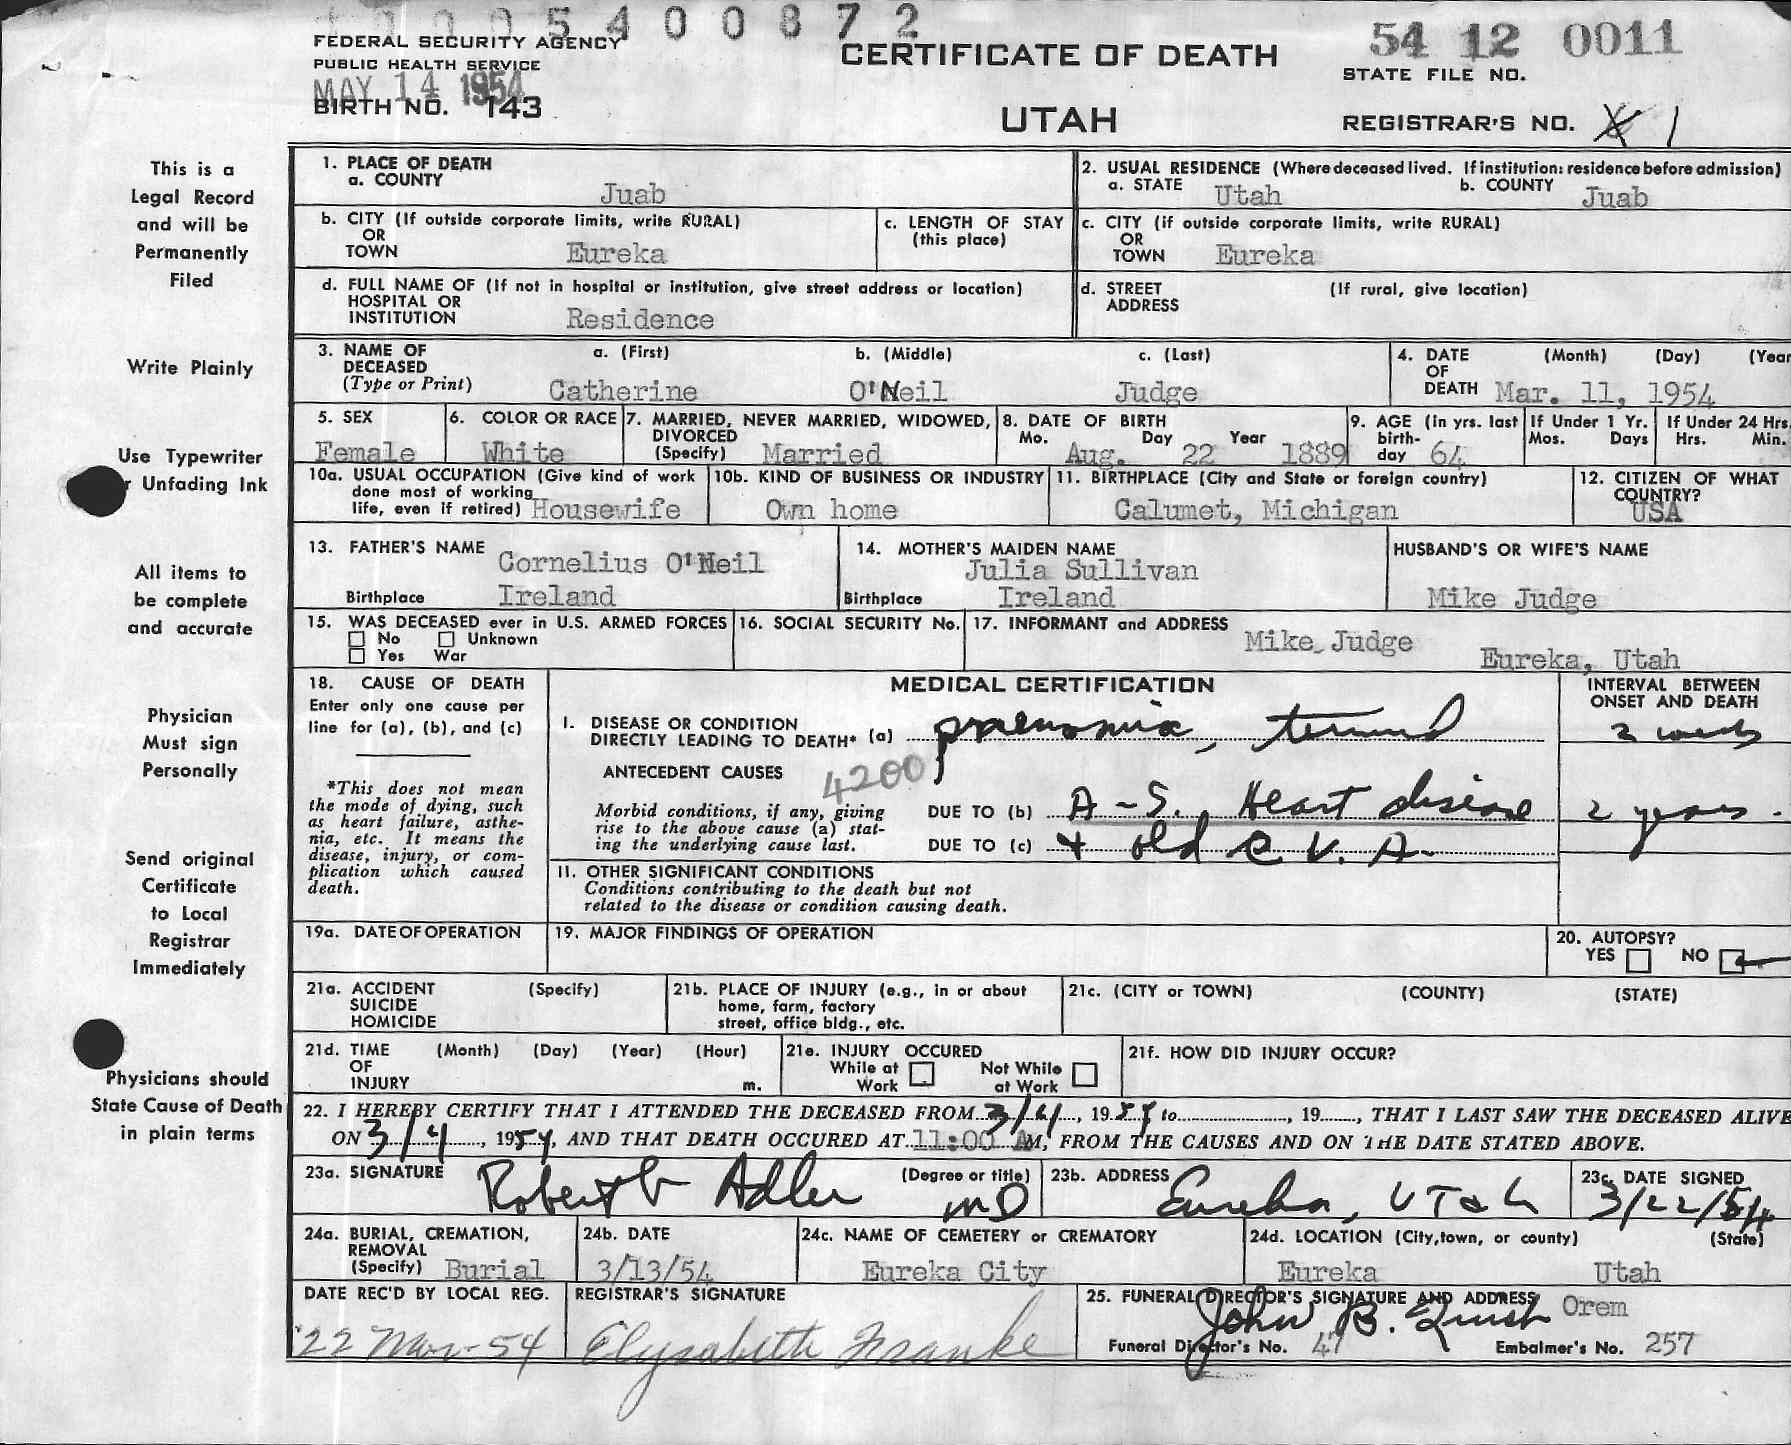 0005400872
FEDERAL SECURITY AGENCY
PUBLIC HEALTH SERVICE
MAY 14 1954
BIRTH NO. 143
CERTIFICATE OF DEATH
UTAH
54 12 0011
STATE FILE NO.
REGISTRAR'S NO. 1
This is a
Legal Record
and will be
Permanently
Filed
Write Plainly
Use Typewriter
r Unfading Ink
All items to
be complete
and accurate
Physician
Must sign
Personally
Send original
Certificate
to Local
Registrar
Immediately
Physicians should
State Cause of Death
in plain terms
1. PLACE OF DEATH
a. COUNTY Juab
2. USUAL RESIDENCE (Where deceased lived. If institution: residence before admission)
a. STATE Utah b. COUNTY Juab
b. CITY (If outside corporate limits, write RURAL)
OR
TOWN Eureka
c. LENGTH OF STAY
(this place)
c. CITY (if outside corporate limits, write RURAL)
OR
TOWN Eureka
d. FULL NAME OF (If not in hospital or institution, give street address or location)
HOSPITAL OR
INSTITUTION Residence
d. STREET (If rural, give location)
ADDRESS
3. NAME OF DECEASED (Type or Print)
a. (First) b. (Middle) c. (Last)
Catherine O'Neil Judge
4. DATE OF DEATH (Month) (Day) (Year
Mar. 11, 1954
5. SEX
Female
6. COLOR OR RACE
White
7. MARRIED, NEVER MARRIED, WIDOWED,
DIVORCED
(Specify) Married
8. DATE OF BIRTH
Mo. Day Year
Aug. 22 1889
9. AGE (in yrs. last
birth-
day 64
If Under 1 Yr.
Mos. Days
If Under 24 Hrs.
Hrs. Min.
10a. USUAL OCCUPATION (Give kind of work
done most of working
life, even if retired) Housewife
10b. KIND OF BUSINESS OR INDUSTRY
Own home
11. BIRTHPLACE (City and State or foreign country)
Calumet, Michigan
12. CITIZEN OF WHAT
COUNTRY?
USA
13. FATHER'S NAME Cornelius O'Neil
Birthplace Ireland
14. MOTHER'S MAIDEN NAME
Julia Sullivan
Birthplace Ireland
HUSBAND'S OR WIFE'S NAME
Mike Judge
15. WAS DECEASED ever in U.S. ARMED FORCES
No Unknown
Yes War
16. SOCIAL SECURITY No.
17. INFORMANT and ADDRESS Mike Judge
Eureka, Utah
18. CAUSE OF DEATH
Enter only one cause per
line for (a), (b), and (c)
*This does not mean
the mode of dying, such
as heart failure, asthe-
nia, etc. It means the
disease, injury, or com-
plication which caused
death.
MEDICAL CERTIFICATION
INTERVAL BETWEEN
ONSET AND DEATH
I. DISEASE OR CONDITION
DIRECTLY LEADING TO DEATH* (a) pneumonia,
ANTECEDENT CAUSES 4200
Morbid conditions, if any, giving
rise to the above cause (a) stat-
ing the underlying cause last.
DUE TO (b) A-S. Heart disease 2 years.
DUE TO (c) + old C. V. A.
II. OTHER SIGNIFICANT CONDITIONS
Conditions contributing to the death but not
related to the disease or condition causing death.
19a. DATE OF OPERATION
19. MAJOR FINDINGS OF OPERATION
20. AUTOPSY?
YES NO
21a. ACCIDENT (Specify)
SUICIDE
HOMICIDE
21b. PLACE OF INJURY (e.g., in or about
home, farm, factory
street, office bldg., etc.
21c. (CITY or TOWN) (COUNTY) (STATE)
21d. TIME (Month) (Day) (Year) (Hour)
OF
INJURY m.
21e. INJURY OCCURED
While at Work Not While at Work
21f. HOW DID INJURY OCCUR?
22. I HEREBY CERTIFY THAT I ATTENDED THE DECEASED FROM 3/4, 1954 to , 19 , THAT I LAST SAW THE DECEASED ALIVE
ON 3/4, 1954, AND THAT DEATH OCCURED AT 11:00 AM, FROM THE CAUSES AND ON THE DATE STATED ABOVE.
23a. SIGNATURE (Degree or title)
Robert G Adler MD
23b. ADDRESS
Eureka, Utah
23c. DATE SIGNED
3/22/54
24a. BURIAL, CREMATION,
REMOVAL
(Specify) Burial
24b. DATE
3/13/54
24c. NAME OF CEMETERY or CREMATORY
Eureka City
24d. LOCATION (City, town, or county) (State)
Eureka Utah
DATE REC'D BY LOCAL REG.
22 Mar-54
REGISTRAR'S SIGNATURE
Elysabeth Franke
25. FUNERAL DIRECTOR'S SIGNATURE AND ADDRESS
John B. Orem
Funeral Director's No. 47 Embalmer's No. 257